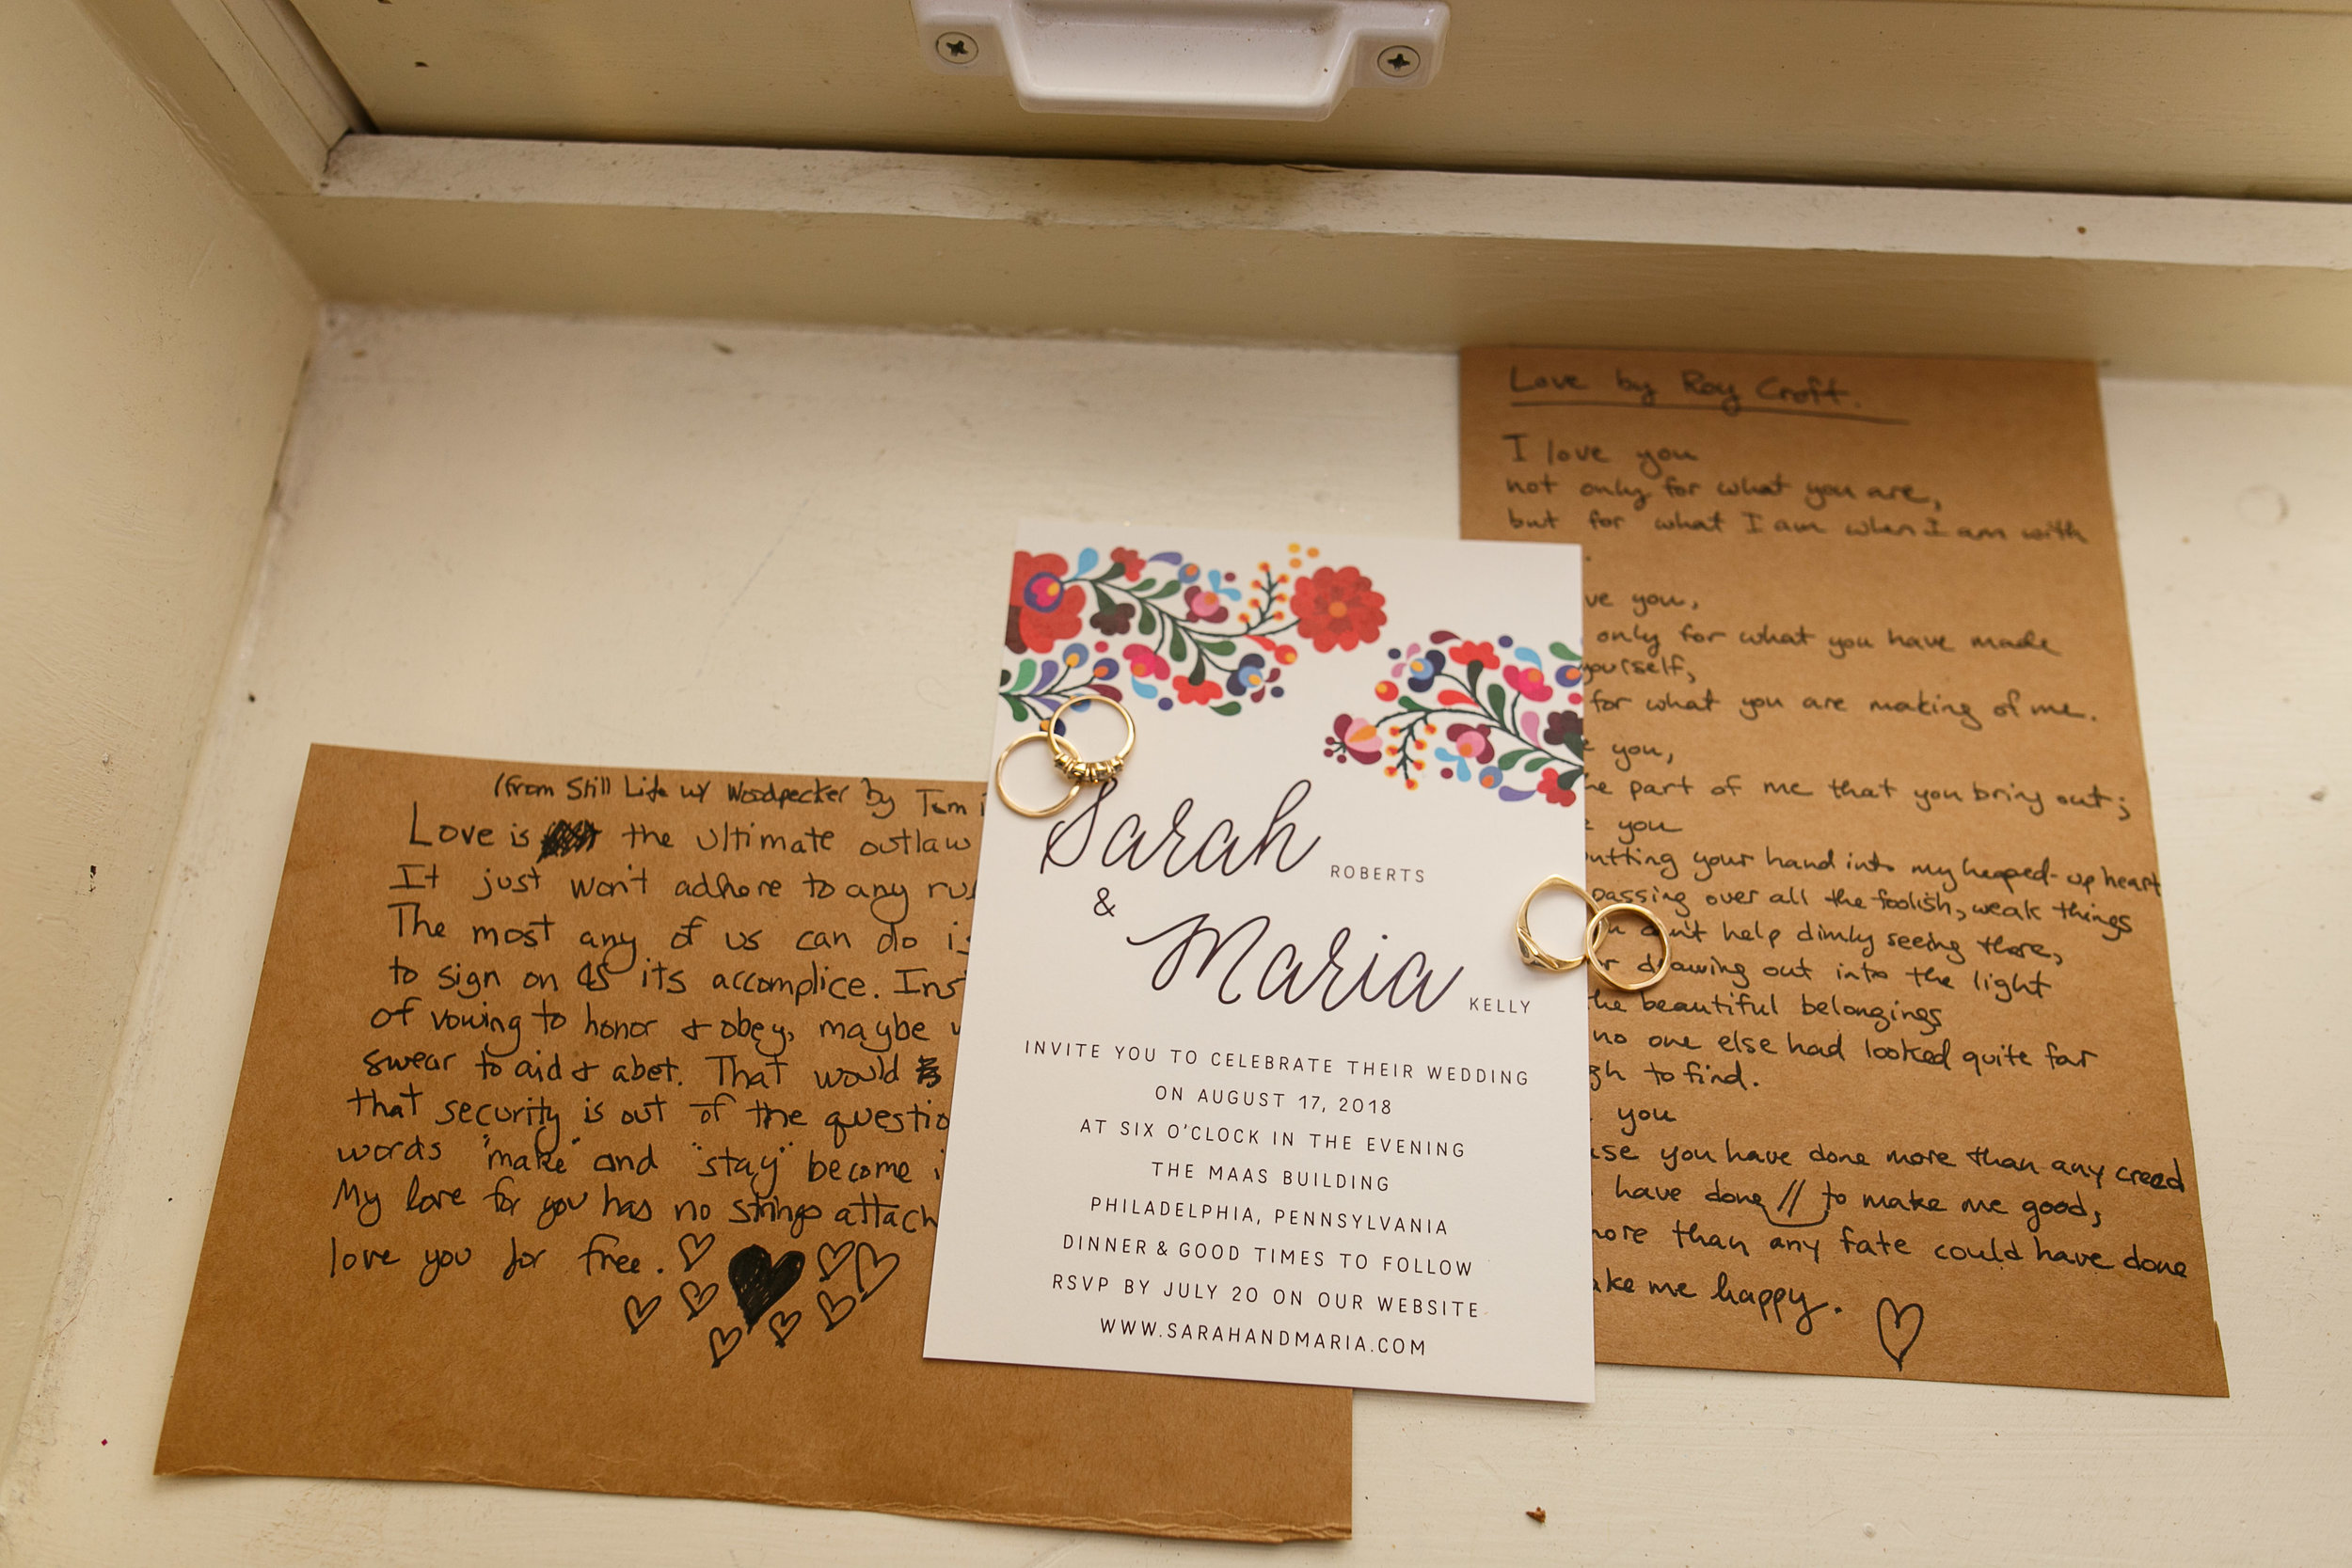 (from Still Life w/ Woodpecker by Tom
Love is the ultimate outlaw
It just won't adhere to any
The most any of us can do
to sign on as its accomplice.
of vowing to honor & obey, maybe
swear to aid & abet. That would
that security is out of the
words "make" and "stay" become
My love for you has no strings
love you for free.
Sarah ROBERTS
&
Maria KELLY
INVITE YOU TO CELEBRATE THEIR WEDDING
ON AUGUST 17, 2018
AT SIX O'CLOCK IN THE EVENING
THE MAAS BUILDING
PHILADELPHIA, PENNSYLVANIA
DINNER & GOOD TIMES TO FOLLOW
RSVP BY JULY 20 ON OUR WEBSITE
WWW.SARAHANDMARIA.COM
Love by Roy Croft.
I love you
not only for what you are,
but for what I am when I am with
you,
only for what you have made
yourself,
for what you are making of me.
you,
part of me that you bring out;
you
your hand into my heaped-up heart
passing over all the foolish, weak things
help dimly seeing there,
drawing out into the light
the beautiful belongings
no one else had looked quite far
to find.
you
you have done more than any creed
have done // to make me good,
than any fate could have done
me happy.